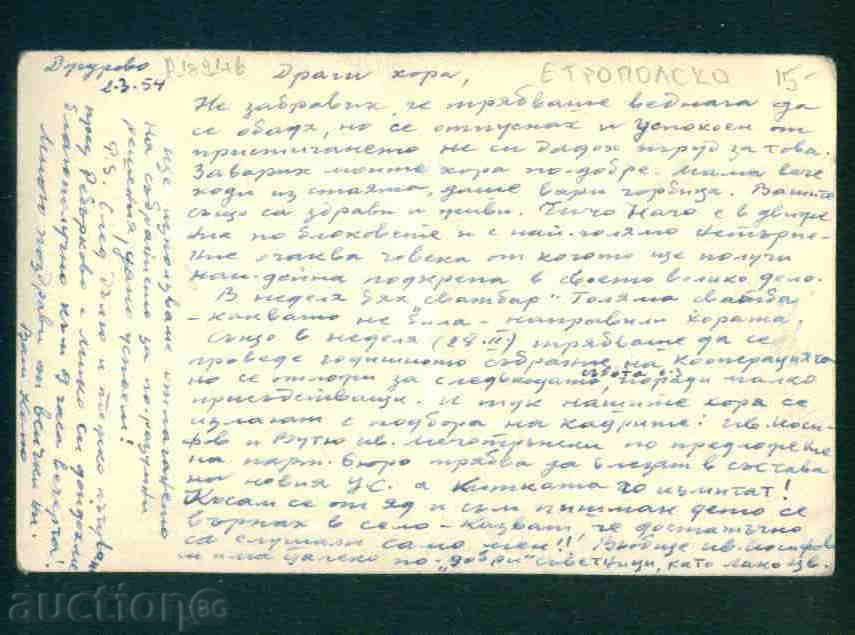 Джурово
2.3.54
Е ТРОПОЛСКО
15
Драги хора,
Не забравих, че трябваше веднага да
се обадя, но се отпуснах и успокоен от
пристигането не си дадох труд за това.
Заварих моите хора по-добре. Мама вече
ходи из стаята, даже вари чорбица. Вашите
също са здрави и живи. Чичо Начо е в движе
ние по блоковете и с най-голямо нетърпе-
ние очаква човека от когото ще получи
най-дейна подкрепа в своето велико дело.
В неделя бях „сватбар". Голяма сватба
- каквато не била - направили хората.
Също в неделя (28.II) трябваше да се
проведе годишното събрание на кооперацията
но се отложи за следващата, поради малко
присъстващи. И тук нашите хора се
излагат с подбора на кадрите! Ив. Йоси-
фов и Вутю Ив. по предложение
на парт. бюро трябва да влезат в състава
на новия УС. а го измитат!
Късам се от яд и съм пишман дето се
върнах в село - казват че достатъчно
са слушали само мен!! Въобще Ив. Йосифов
и има далеко по-„добри" съветници, като
ще използваме отлагането
на събранието за по-разумни
решения, дано успеем!
P.S. След дълго и тежко пътуване
през Ребърково - Мико си дойдохме
благополучно към 9 часа вечерта!
Много поздрави от всички ни.
Ваш
auctionBG